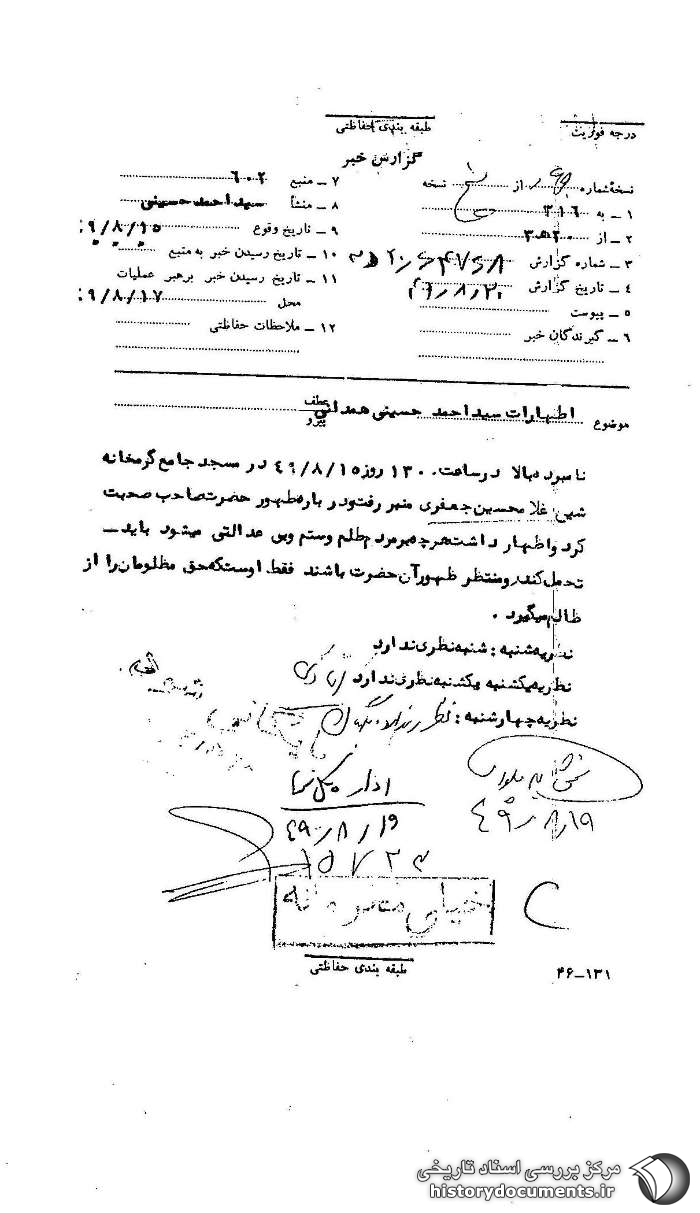 درجه فوریت
طبقه بندی حفاظتی
گزارش خبر
نسخهٔ شماره از نسخه
۱ ـ به ۳۱۶
۲ ـ از
۳ ـ شماره گزارش
۴ ـ تاریخ گزارش ۴۹/۸/۲۰
۵ ـ پیوست
۶ ـ گیرندگان خبر
۷ ـ منبع ۶۰۲
۸ ـ منشأ سید احمد حسینی
۹ ـ تاریخ وقوع ۹/۸/۱۵
۱۰ ـ تاریخ رسیدن خبر به منبع
۱۱ ـ تاریخ رسیدن خبر برهبر عملیات
محل ۹/۸/۱۷
۱۲ ـ ملاحظات حفاظتی
موضوع اظهارات سید احمد حسینی همدانی
عطف
پیرو
نامبرده بالا در ساعت ۱۳۰۰ روز ۴۹/۸/۱۵ در مسجد جامع گرمخانه
شیخ غلامحسین جعفری منبر رفت و درباره ظهور حضرت صاحب صحبت
کرد و اظهار داشت هر چه بر مردم ظلم و ستم و بی عدالتی میشود باید ـ
تحمل کنند و منتظر ظهور آن حضرت باشند فقط اوست که حق مظلومان را از
ظالم میگیرد .
نظریه شنبه : شنبه نظری ندارد
نظریه یکشنبه یکشنبه نظری ندارد
نظریه چهارشنبه :
۴۹/۸/۱۹
۴۹/۸/۱۹
خیلی محرمانه
طبقه بندی حفاظتی
۴۶ـ۱۳۱
مرکز بررسی اسناد تاریخی
historydocuments.ir